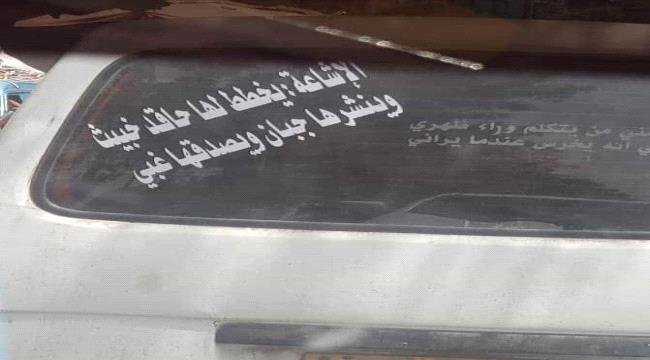 الإشاعة: يخطط لها حاقد خبيث
وينشرها جبان ويصدقها غبي
من يتكلم وراء ظهري
انه يخرس عندما يراني